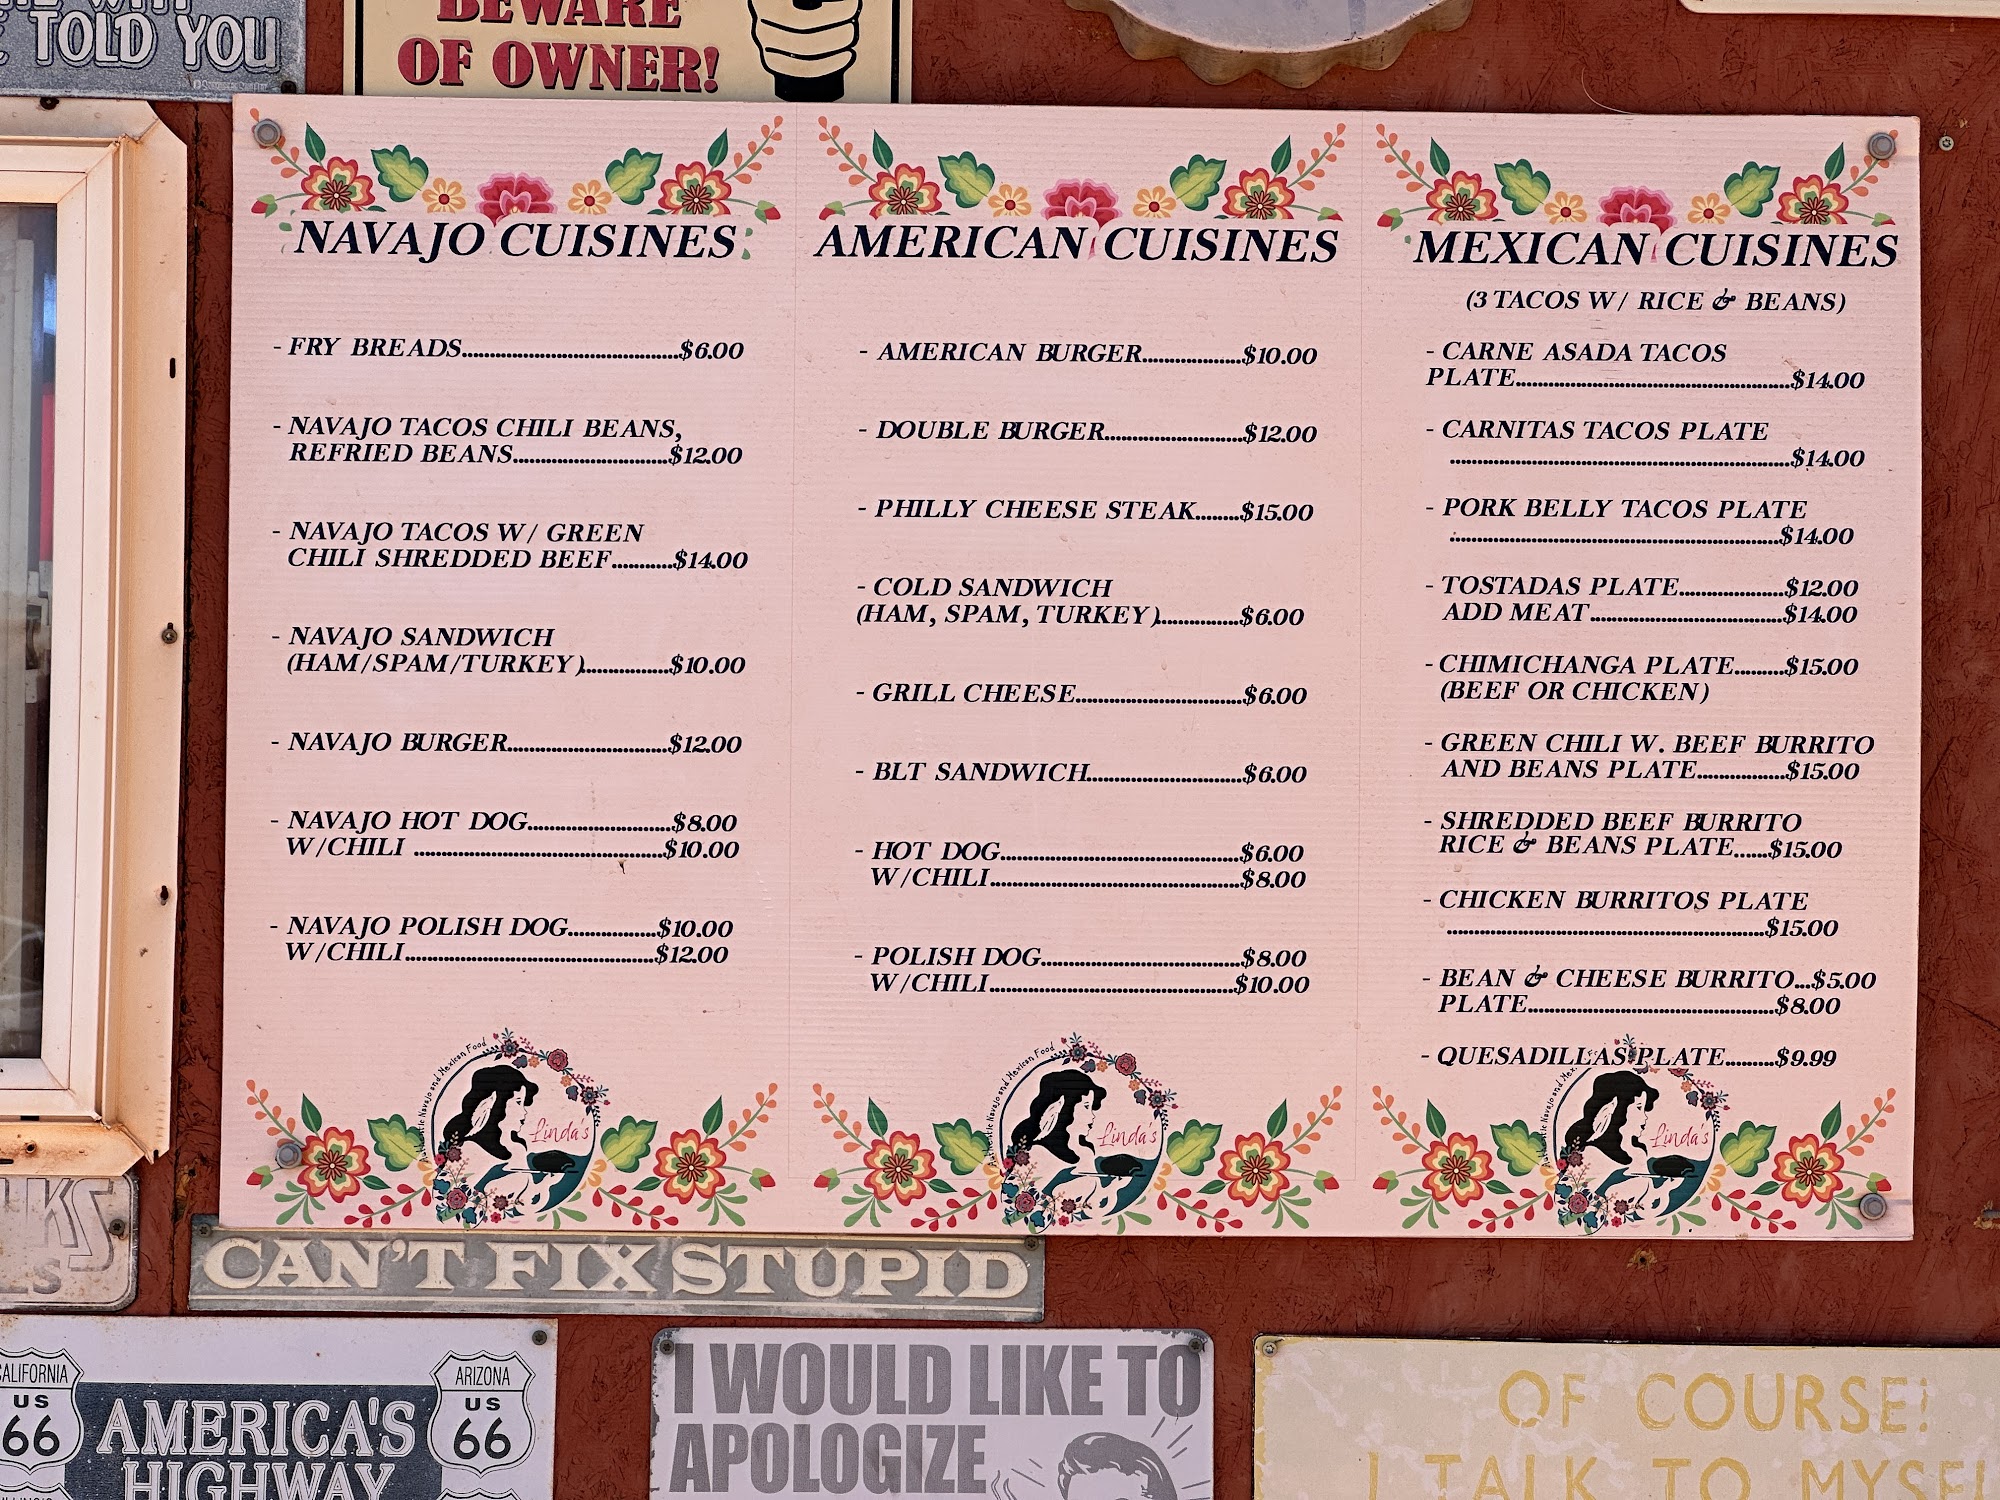 TOLD YOU
BEWARE
OF OWNER!
NAVAJO CUISINES
- FRY BREADS.......................................$6.00
- NAVAJO TACOS CHILI BEANS,
REFRIED BEANS............................$12.00
- NAVAJO TACOS W/ GREEN
CHILI SHREDDED BEEF...........$14.00
- NAVAJO SANDWICH
(HAM/SPAM/TURKEY)................$10.00
- NAVAJO BURGER.............................$12.00
- NAVAJO HOT DOG..........................$8.00
W/CHILI .............................................$10.00
- NAVAJO POLISH DOG................$10.00
W/CHILI.............................................$12.00
Authentic Navajo and Mexican Food
Linda's
AMERICAN CUISINES
- AMERICAN BURGER..................$10.00
- DOUBLE BURGER.........................$12.00
- PHILLY CHEESE STEAK........$15.00
- COLD SANDWICH
(HAM, SPAM, TURKEY)...............$6.00
- GRILL CHEESE..............................$6.00
- BLT SANDWICH............................$6.00
- HOT DOG...........................................$6.00
W/CHILI.............................................$8.00
- POLISH DOG....................................$8.00
W/CHILI............................................$10.00
Authentic Navajo and Mexican Food
Linda's
MEXICAN CUISINES
(3 TACOS W/ RICE & BEANS)
- CARNE ASADA TACOS
PLATE.................................................$14.00
- CARNITAS TACOS PLATE
.............................................................$14.00
- PORK BELLY TACOS PLATE
...........................................................$14.00
- TOSTADAS PLATE...................$12.00
ADD MEAT ...................................$14.00
- CHIMICHANGA PLATE.........$15.00
(BEEF OR CHICKEN)
- GREEN CHILI W. BEEF BURRITO
AND BEANS PLATE................$15.00
- SHREDDED BEEF BURRITO
RICE & BEANS PLATE......$15.00
- CHICKEN BURRITOS PLATE
.........................................................$15.00
- BEAN & CHEESE BURRITO...$5.00
PLATE............................................$8.00
- QUESADILLAS PLATE.........$9.99
Authentic Navajo and Mexic
Linda's
CAN'T FIX STUPID
CALIFORNIA
US
66
AMERICA'S
HIGHWAY
ARIZONA
US
66
I WOULD LIKE TO
APOLOGIZE
OF COURSE!
I TALK TO MYSEL